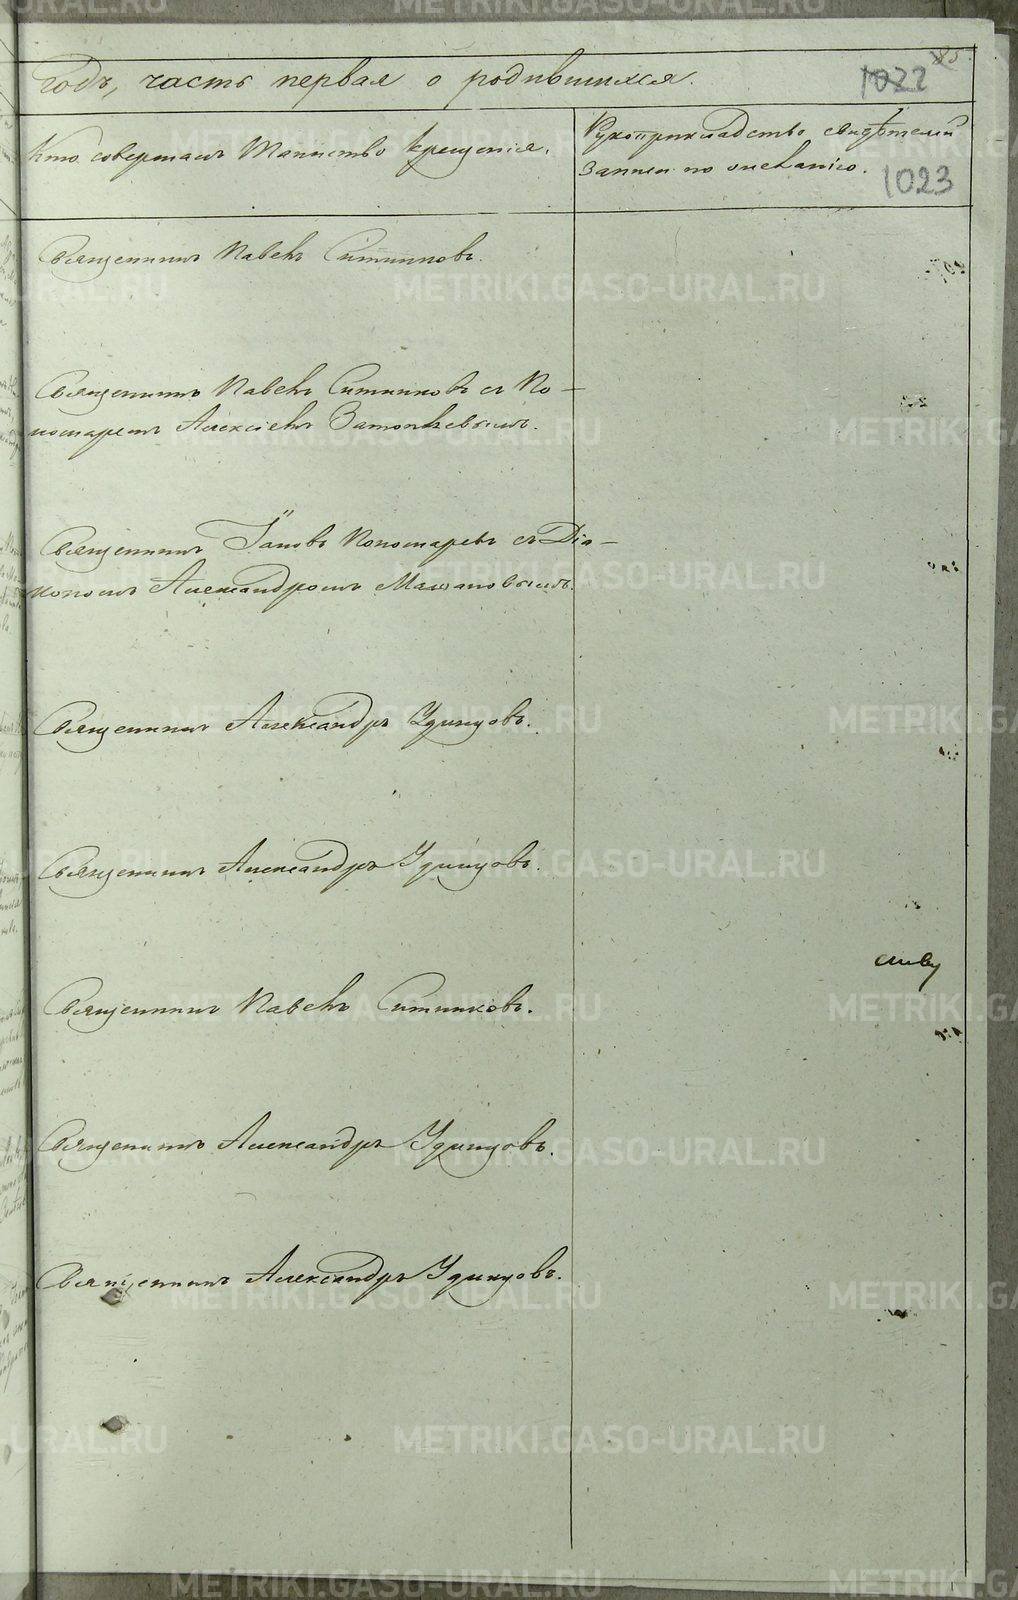 годъ, часть первая о родившихся.
85.
1022
Кто совершалъ таинство крещенія.
Рукоприкладство свидѣтелей
записи по желанію.
1023
Священникъ Павелъ Ситниковъ.
Священникъ Павелъ Ситниковъ съ По-
номаремъ Алексіемъ
Священникъ Іаковъ Пономаревъ съ Діа-
кономъ Александромъ
Священникъ Александръ Удинцовъ.
Священникъ Александръ Удинцовъ.
Священникъ Павелъ Ситниковъ.
Священникъ Александръ Удинцовъ.
Священникъ Александръ Удинцовъ.
METRIKI.GASO-URAL.RU